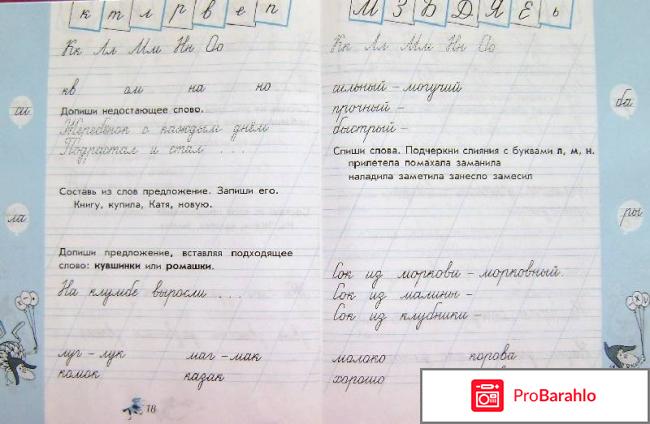 к т л р в е п
Кк Лл Мм Нн Оо
кв ом на но
Допиши недостающее слово.
Жеребёнок с каждым днём
Подрастал и стал . . .
Составь из слов предложение. Запиши его.
Книгу, купила, Катя, новую.
Допиши предложение, вставляя подходящее
слово: кувшинки или ромашки.
На клумбе выросли . . .
луг – лук маг – мак
комок казак
18
ла
М З Ь Д Я Ё ь
Кк Лл Мм Нн Оо
сильный – могучий
прочный –
быстрый –
Спиши слова. Подчеркни слияния с буквами л, м, н.
прилетела помахала заманила
наладила заметила занесло замесил
Сок из моркови – морковный.
Сок из малины –
Сок из клубники –
молоко корова
хорошо
ба
ры
ProBarahlo